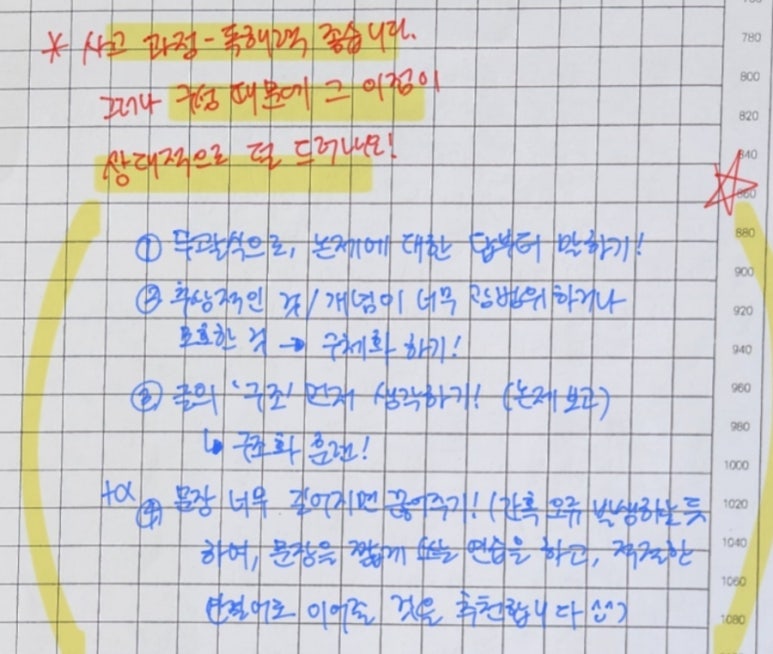 * 사고 과정 - 독해력 좋습니다.
780
그러나 구성 때문에 그 이점이
800
820
상대적으로 덜 드러나요!
840
860
880
① 두괄식으로, 논제에 대한 답부터 말하기!
900
② 추상적인 것/개념이 너무 광범위하거나
920
모호한 것 → 구체화 하기!
940
③ 글의 '구조' 먼저 생각하기! (논제 보고)
960
980
↳ 구조화 훈련!
1000
+α ④ 문장 너무 길어지면 끊어주기! (간혹 오류 발생하는 듯
1020
하여, 문장을 짧게 쓰는 연습을 하고, 적절한
1040
1060
연결어로 이어줄 것을 추천합니다 ^^)
1080